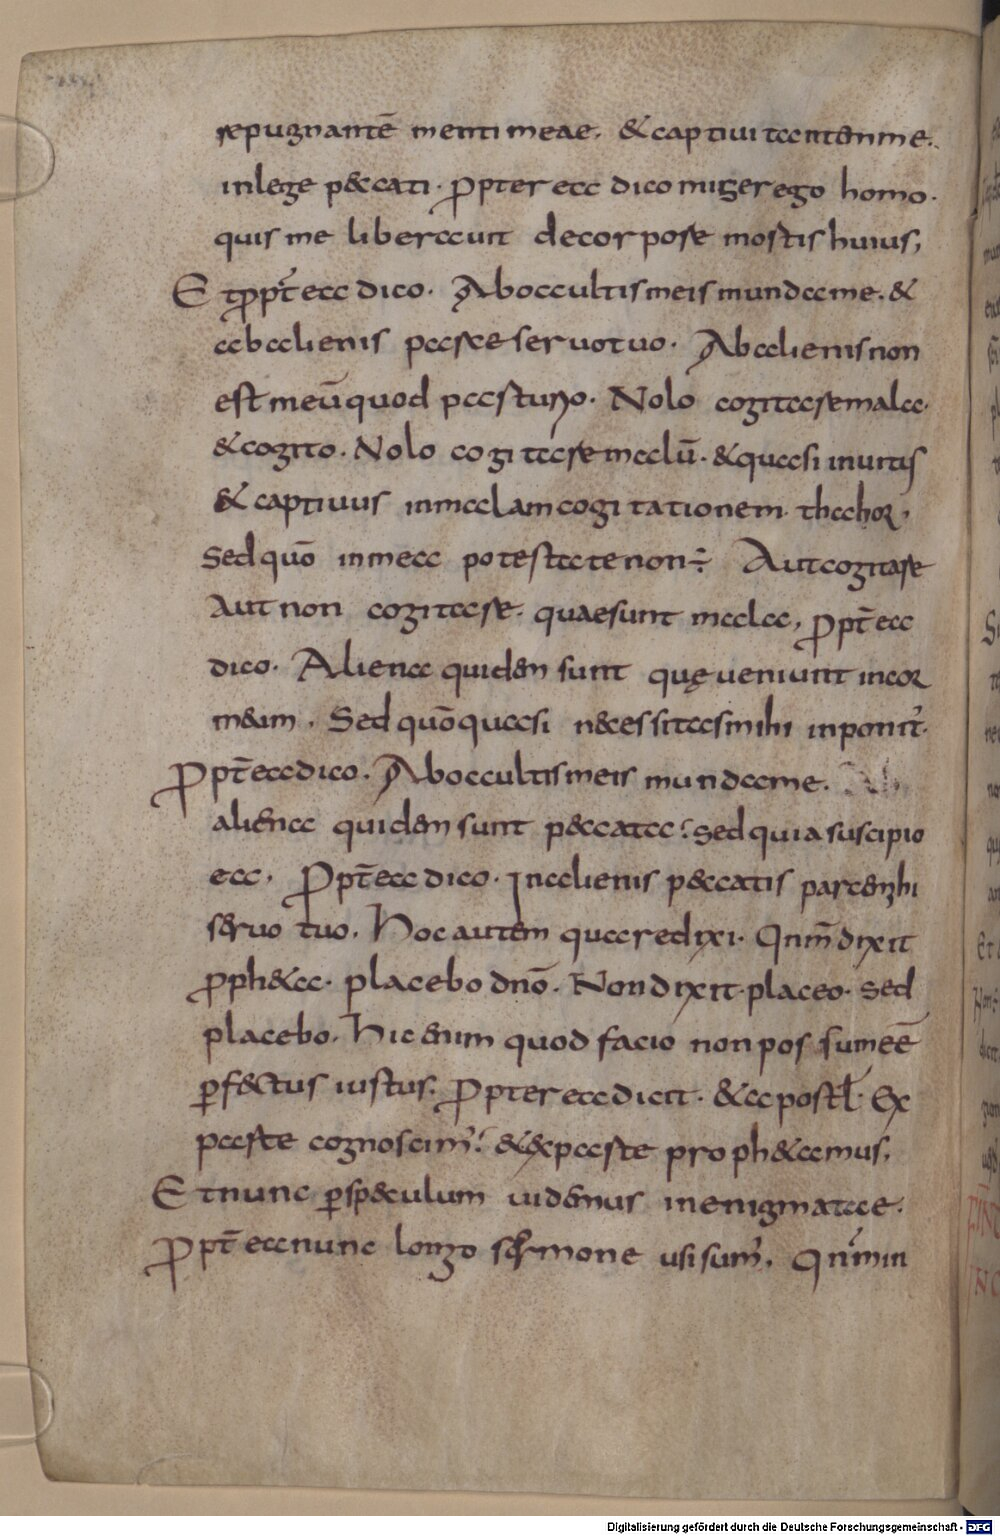 repugnantē menti meae. & captiuitantem me.
in lege peccati. ꝓpterea dico miser ego homo.
quis me liberauit de corpore mortis huius;
Et ꝓpt̄ ea dico. Ab occultis meis munda me. &
ab alienis parce seruo tuo. Ab alienis non
est meū quod pasturio. Nolo cogitare mala.
& cogito. Nolo cogitare malū. & quasi inuitis
& captiuus in malam cogitationem. thahor.
Sed quō in mea potestate non ÷ Aut cogitare
Aut non cogitare. quae sunt mala, ꝓpt̄ ea
dico. Aliena quidem sunt quę ueniunt in cor
meum. Sed quō quasi necessitas mihi inponit̉.
Ꝓpt̄ ea dico. Ab occultis meis munda me.
aliena quidem sunt peccata. sed quia suscipio
ea. ꝓpt̄ ea dico. In alienis peccatis parce mihi
seruo tuo. Hoc autem quare dixi. Qnm̄ dixit
ꝓph&a. placebo dnō. Non dixit placeo. sed
placebo. Hic enim quod facio non possum eē
ꝑfectus iustus. ꝓpterea dicit. & apostł. Ex
parte cognoscim̉. & ex parte proph&amus.
Et nunc ꝑ speculum uidemus in enigmatae.
Ꝓpt̄ ea nunc longo sermone usi sum̉. Qnm̄ in
Digitalisierung gefördert durch die Deutsche Forschungsgemeinschaft - DFG